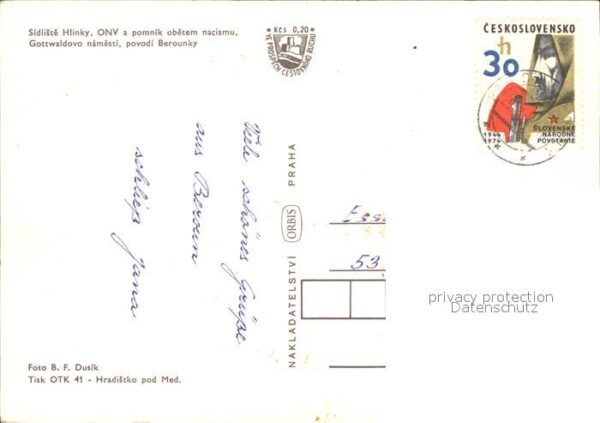 Sídliště Hlinky, ONV a pomník obětem nacismu,
Gottwaldovo náměstí, povodí Berounky
Kčs 0,20
VE PROSPĚCH CESTOVNÍHO RUCHU
ČESKOSLOVENSKO
30h
1944
1974
SLOVENSKÉ
NÁRODNÉ
POVSTANIE
Viele schönes Grüße
aus Beroun
Jana
NAKLADATELSTVÍ ORBIS PRAHA
Ess
53
privacy protection
Datenschutz
Foto B. F. Dusík
Tisk OTK 41 - Hradištko pod Med.